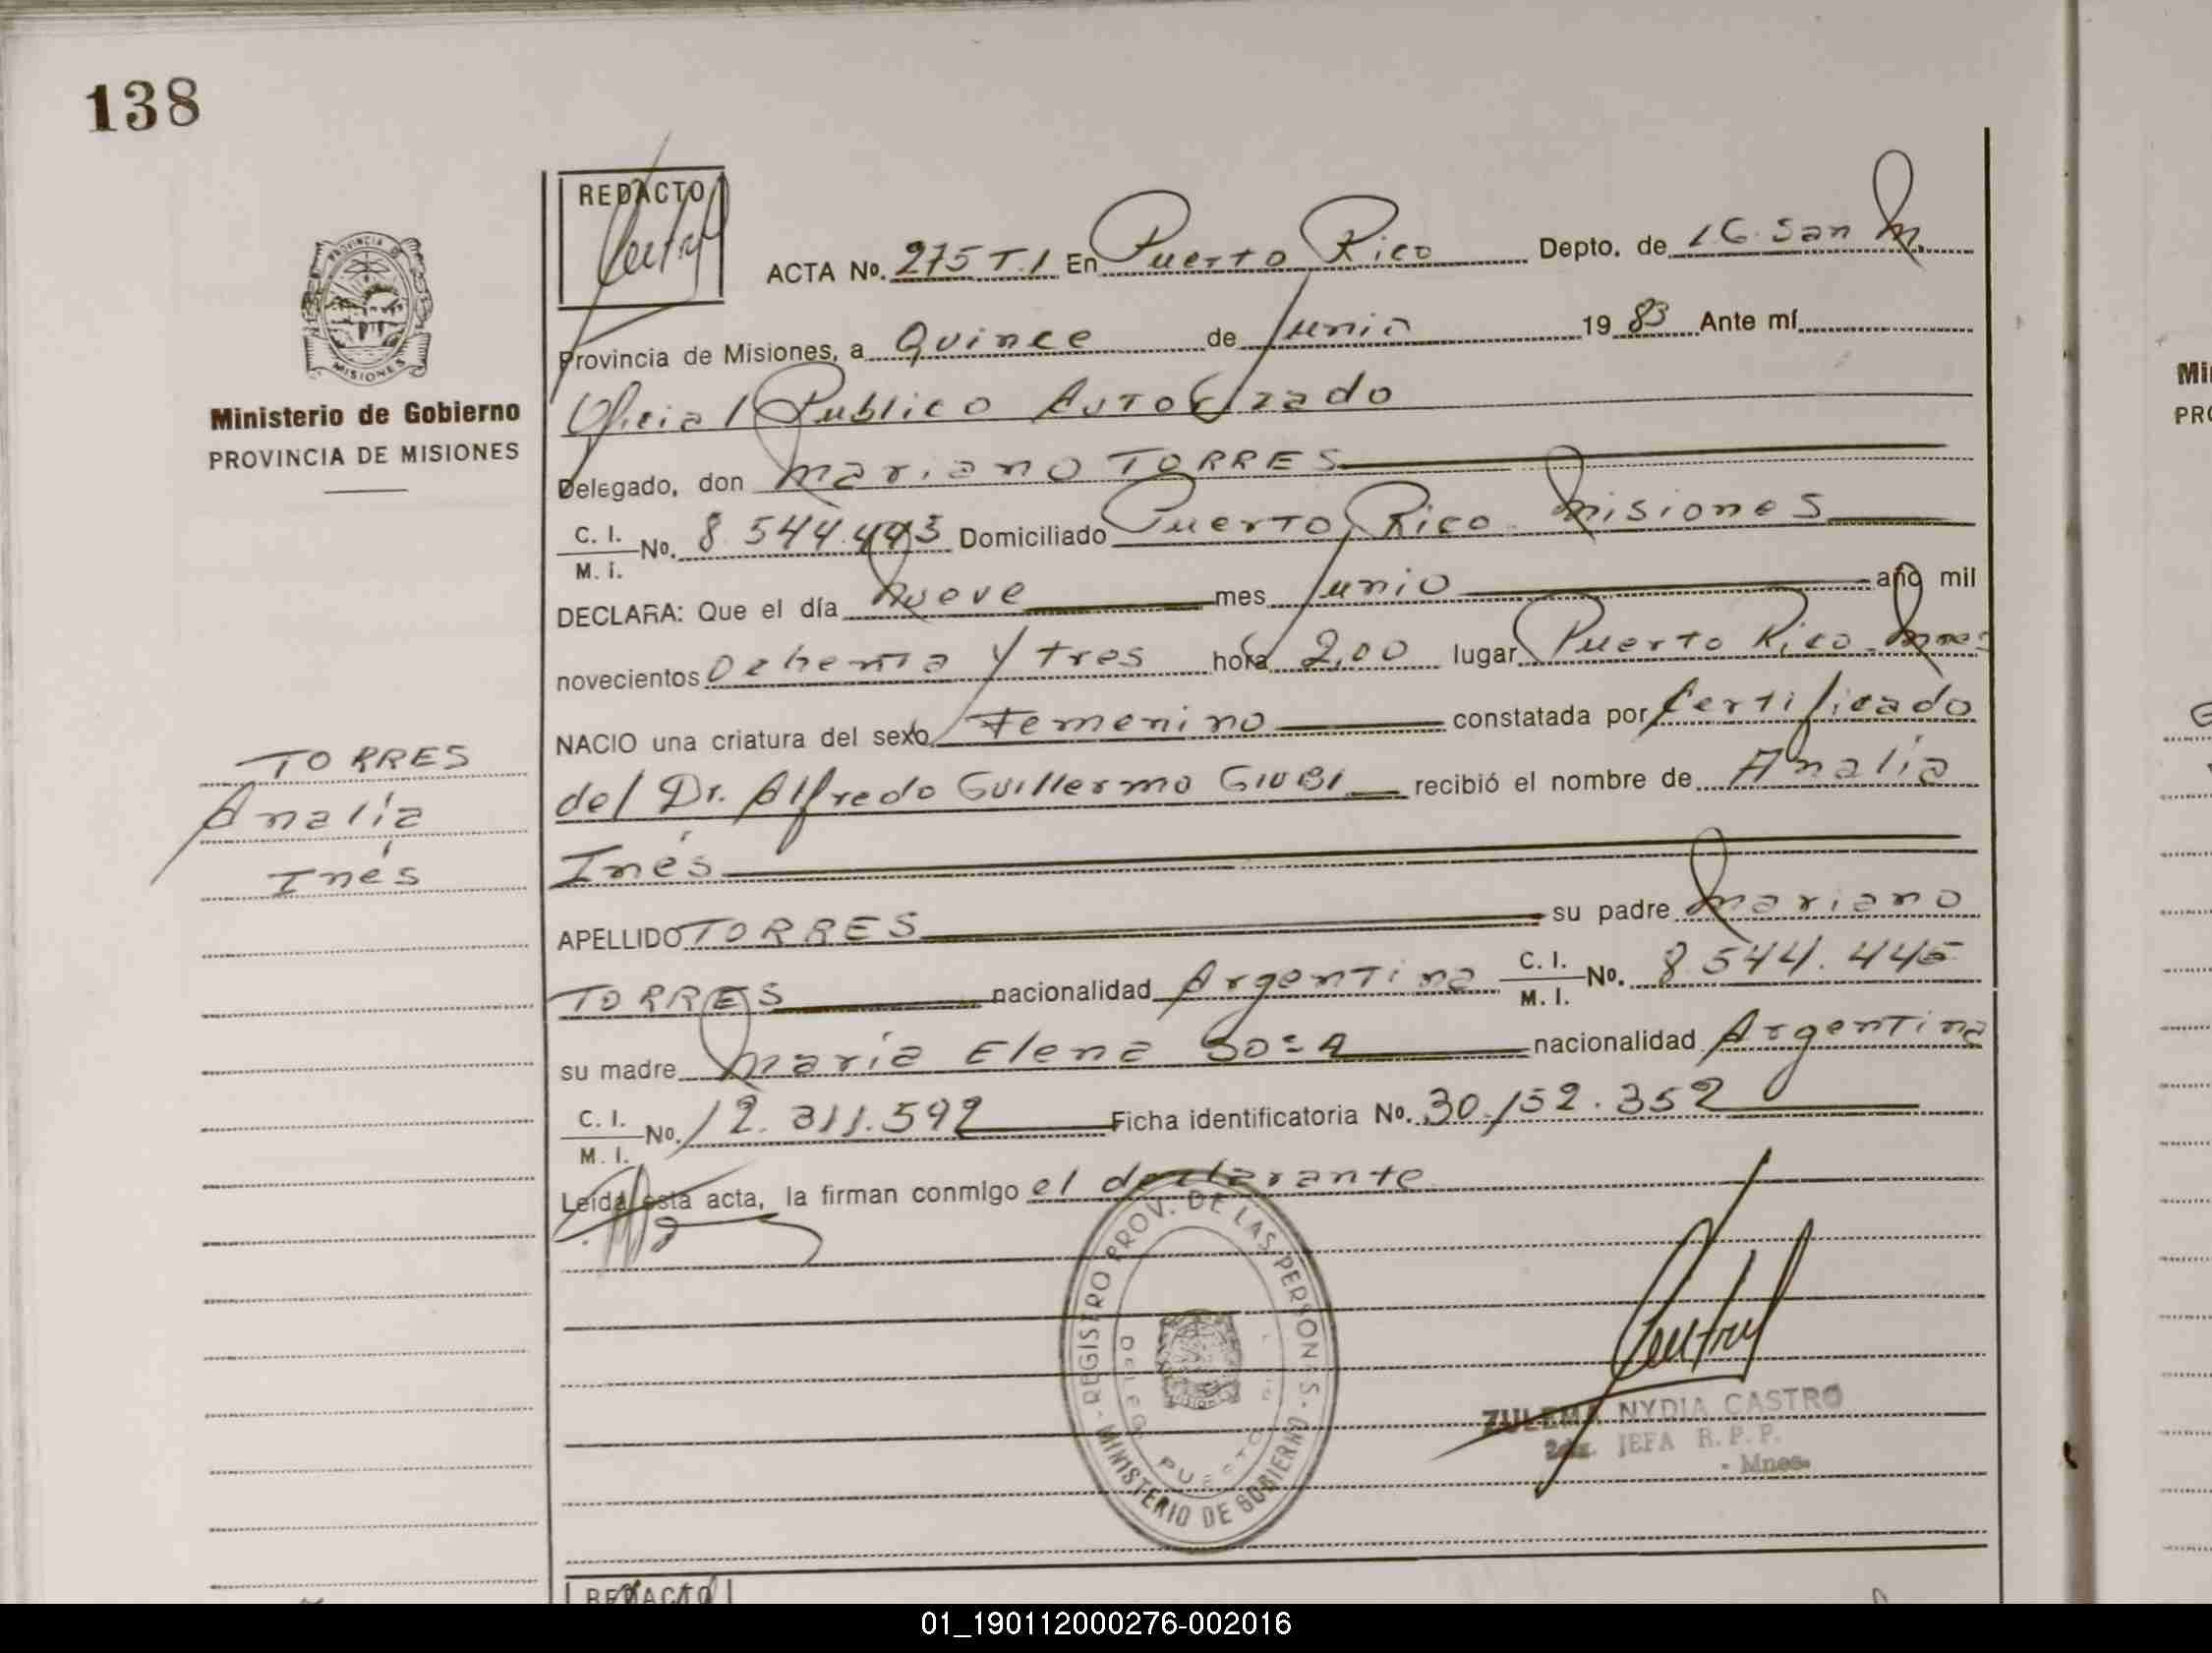 138
REDACTO
ACTA No. 275 T. I En Puerto Rico Depto. de L.G. San M.
Provincia de Misiones, a Quince de Junio 19 83 Ante mí
Oficial Publico Autorizado
Delegado, don Mariano TORRES
C. I. / M. I. No. 8.544.445 Domiciliado Puerto Rico - Misiones
DECLARA: Que el día Nueve mes Junio año mil
novecientos Ochenta y tres hora 2,00 lugar Puerto Rico - Mnes
NACIO una criatura del sexo Femenino constatada por Certificado
del Dr. Alfredo Guillermo GIUBI recibió el nombre de Analía
Inés
APELLIDO TORRES su padre Mariano
TORRES nacionalidad Argentina C. I. / M. I. No. 8.544.445
su madre María Elena nacionalidad Argentina
C. I. / M. I. No. 12.311.592 Ficha identificatoria No. 30.152.352
Leída esta acta, la firman conmigo el declarante
PROVINCIA DE
MISIONES
Ministerio de Gobierno
PROVINCIA DE MISIONES
TORRES
Analía
Inés
REGISTRO PROV. DE LAS PERSONAS - MINISTERIO DE GOBIERNO -
PUERTO
ZULEMA NYDIA CASTRO
2da. JEFA R. P. P.
- Mnes.
REDACTO
Mi
PRO
01_190112000276-002016